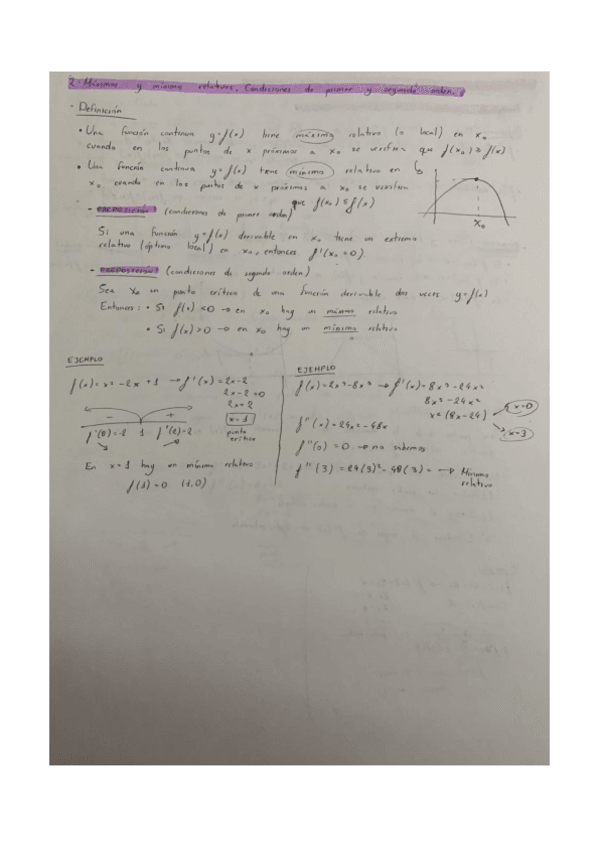 2- Máximos y mínimos relativos. Condiciones de primer y segundo orden.
- Definición
• Una función continua y=f(x) tiene máximo relativo (o local) en x₀
cuando en los puntos de x próximos a x₀ se verifica que f(x₀) ≥ f(x)
• Una función continua y=f(x) tiene mínimo relativo en
x₀ cuando en los puntos de x próximos a x₀ se verifica
que f(x₀) ≤ f(x)
x₀
- PREPOSICIÓN (condiciones de primer orden)
Si una función y=f(x) derivable en x₀ tiene un extremo
relativo (óptimo local) en x₀, entonces f'(x₀=0).
- PREPOSICIÓN (condiciones de segundo orden)
Sea x₀ un punto crítico de una función derivable dos veces y=f(x)
Entonces: • Si f(x) <0 → en x₀ hay un máximo relativo
• Si f(x) >0 → en x₀ hay un mínimo relativo
EJEMPLO
f(x)= x² -2x +1 → f'(x) = 2x-2
2x-2=0
2x=2
x=1
punto
crítico
- +
f'(0)=-2 1 f'(2)=2
En x=1 hay un mínimo relativo
f(1)=0 (1,0)
EJEMPLO
f'(x)= 8x³-24x²
8x³-24x²
x²(8x-24)
x=0
x=3
f''(0) = 0 → no sabemos
f''(3) = 24(3)²-48(3) = → Mínimo
relativo